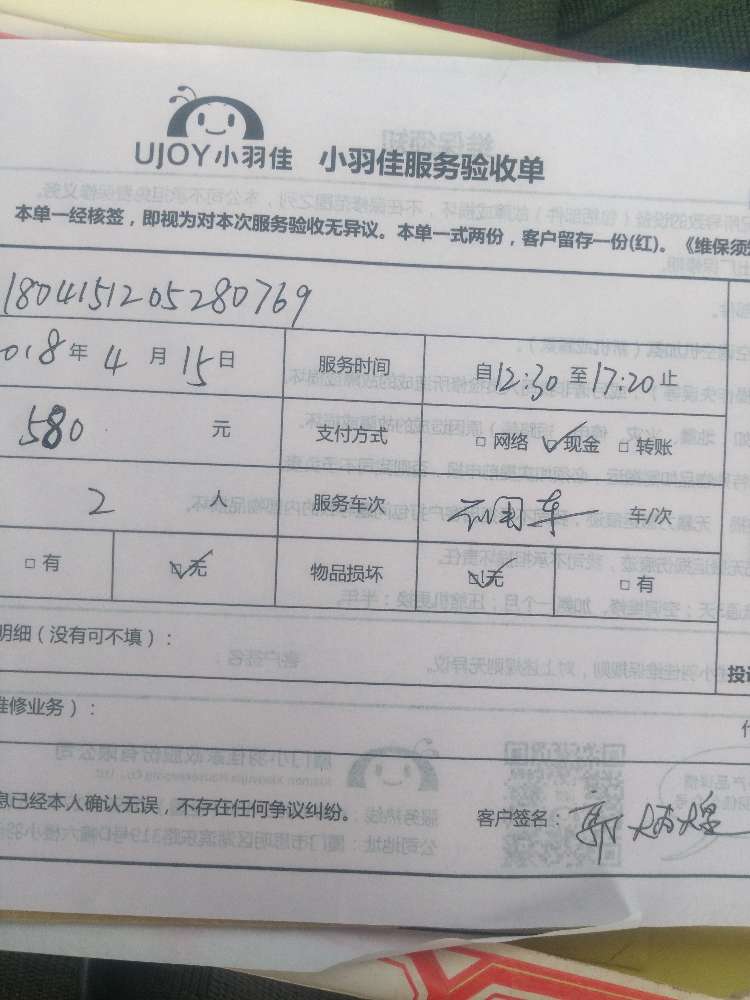 UJOY小羽佳 小羽佳服务验收单
本单一经核签，即视为对本次服务验收无异议。本单一式两份，客户留存一份(红)。《维保须
1804151205280769
018年4月15日 服务时间 自12:30至17:20止
580 元 支付方式 □网络 ☑现金 □转账
2 人 服务车次 车/次
□有 ☑无 物品损坏 ☑无 □有
明细（没有可不填）：
投
维修业务）：
息已经本人确认无误，不存在任何争议纠纷。 客户签名：郭